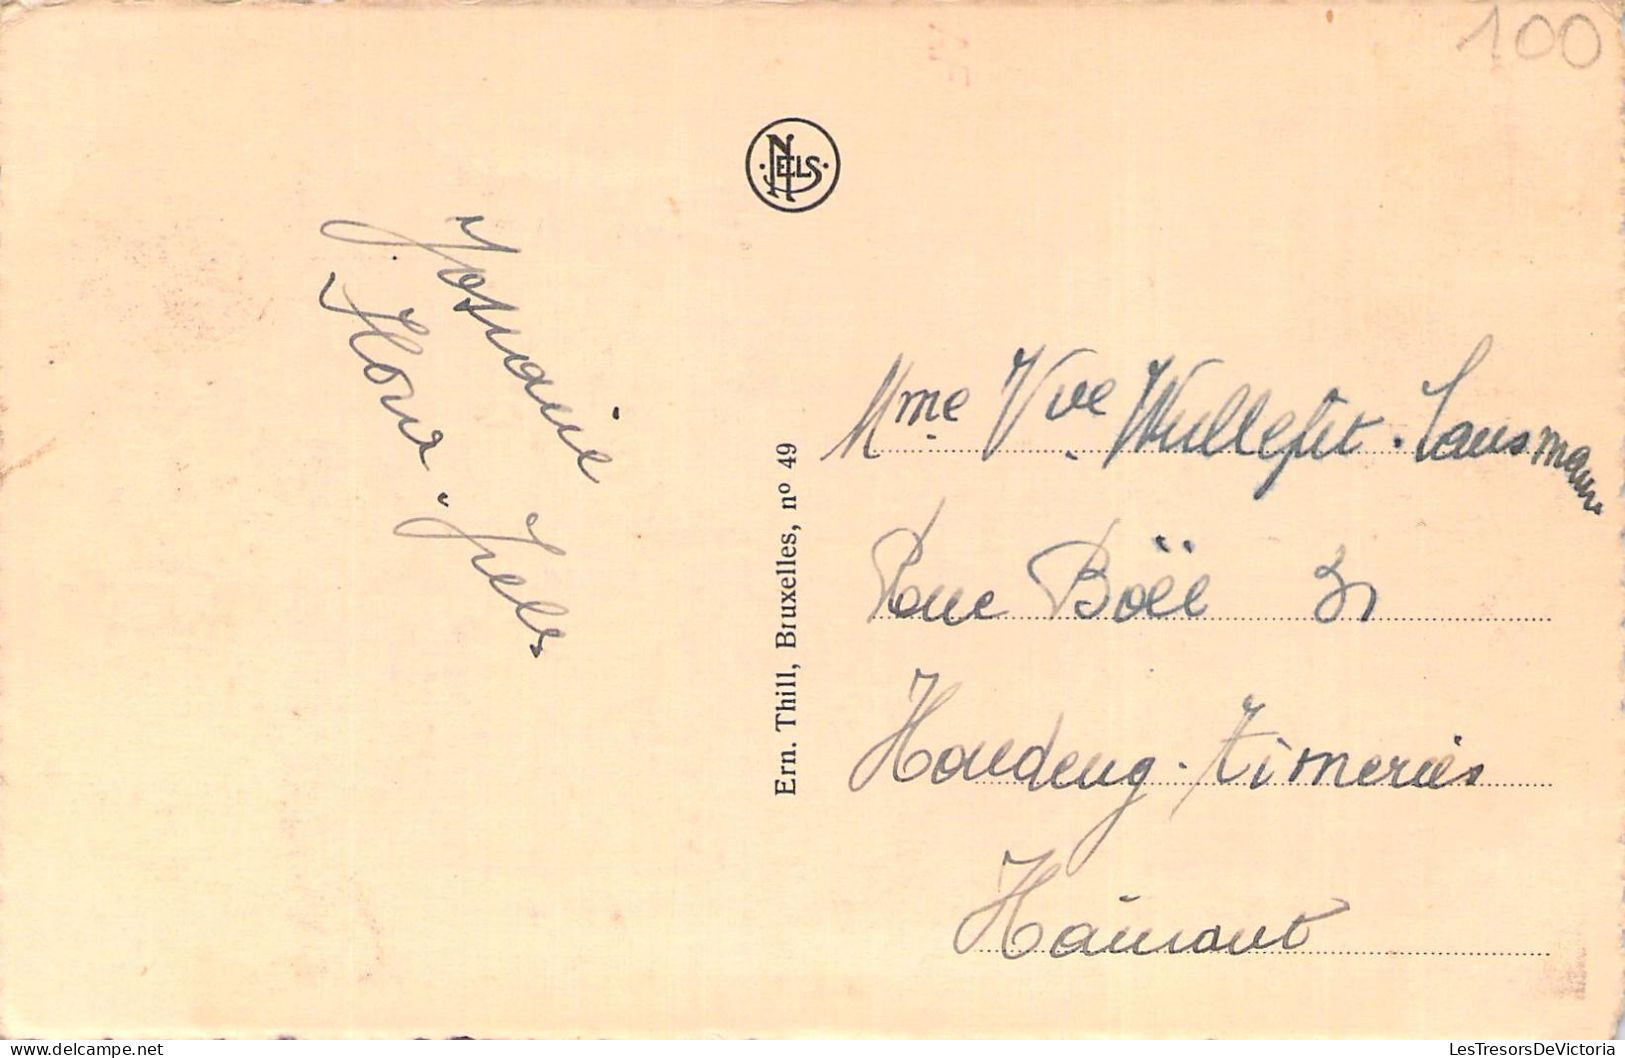 100
NELS
Josiane
Flora - Jules
Ern. Thill, Bruxelles, nº 49
Mme Vve Wullepit - Lausmann
Rue Boël 31
Houdeng-Aimeries
Hainaut
delcampe.net
LesTresorsDeVictoria